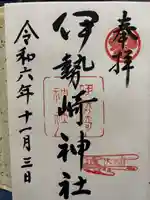 奉拝
伊勢崎神社
令和六年十一月三日